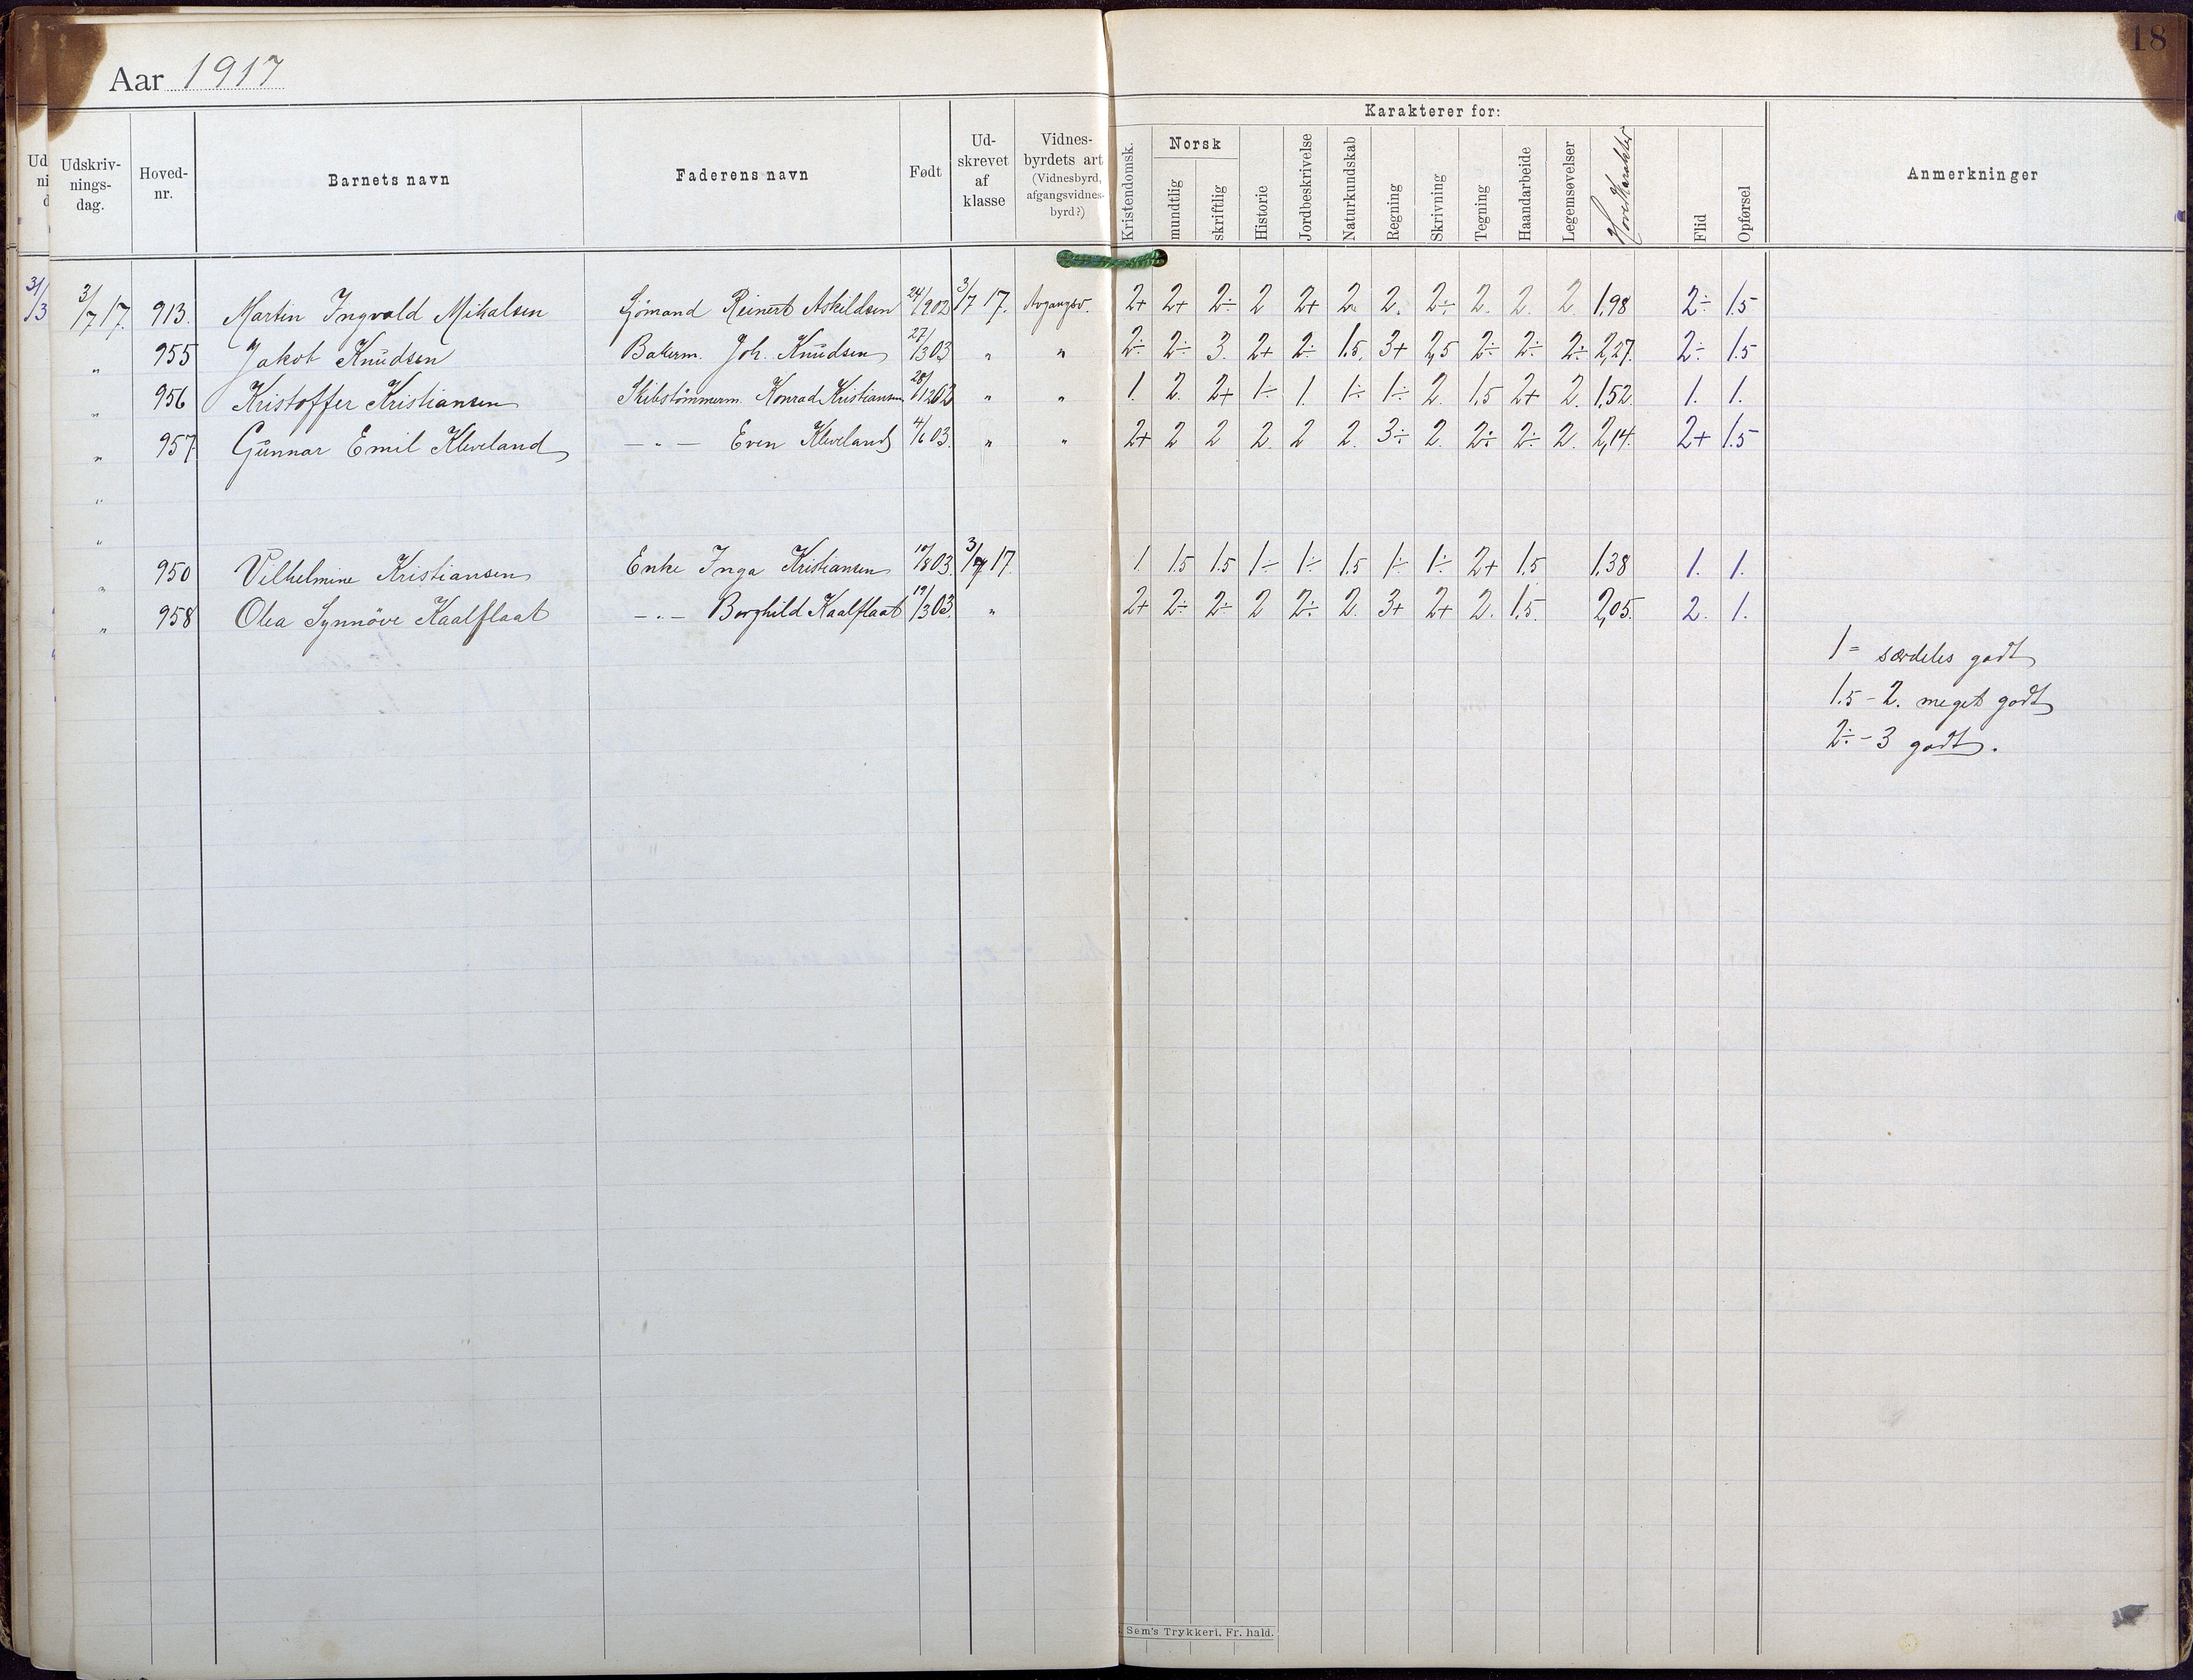 18
Aar 1917
Karakterer for:
Udskriv-
nings-
dag.
Hoved-
nr.
Barnets navn
Faderens navn
Født
Ud-
skrevet
af
klasse
Vidnes-
byrdets art
(Vidnesbyrd,
afgangsvidnes-
byrd?)
Kristendomsk.
Norsk
mundtlig
skriftlig
Historie
Jordbeskrivelse
Naturkundskab
Regning
Skrivning
Tegning
Haandarbeide
Legemsøvelser
Hovedkarakter
Flid
Opførsel
Anmerkninger
3/7 17. 913. Martin Ingvald Mikalsen Sjömand Reinert Askildsen 24/902 3/7 17. Avgangsv. 2+ 2+ 2÷ 2 2+ 2. 2. 2÷ 2. 2. 2 1,98 2÷ 1.5
" 955 Jakob Knudsen Bakerm. Joh. Knudsen 27/303 " " 2÷ 2÷ 3. 2+ 2÷ 1.5. 3+ 2,5 2÷ 2÷ 2÷ 2,27. 2÷ 1.5
" 956 Kristoffer Kristiansen Skibstömmerm. Konrad Kristiansen 28/1202 " " 1. 2. 2+ 1÷ 1. 1÷ 1÷ 2. 1.5 2+ 2. 1,52. 1. 1.
" 957. Gunnar Emil Kleveland — " — Even Kleveland 4/6 03. " " 2+ 2 2 2. 2 2. 3÷ 2. 2÷ 2÷ 2. 2,14. 2+ 1.5
"
"
" 950 Vilhelmine Kristiansen Enke Inga Kristiansen 10/803. 3/7 17. 1 1.5 1.5 1÷ 1÷ 1.5 1÷ 1÷ 2+ 1.5 1,38 1. 1.
" 958 Olea Synnöve Kaalflaat — " — Borghild Kaalflaat 19/303. " 2+ 2÷ 2÷ 2 2÷ 2. 3+ 2+ 2. 1.5. 2,05. 2. 1.
1 = særdeles godt
1.5 - 2. meget godt
2÷ - 3 godt.
Sem's Trykkeri. Fr. hald.